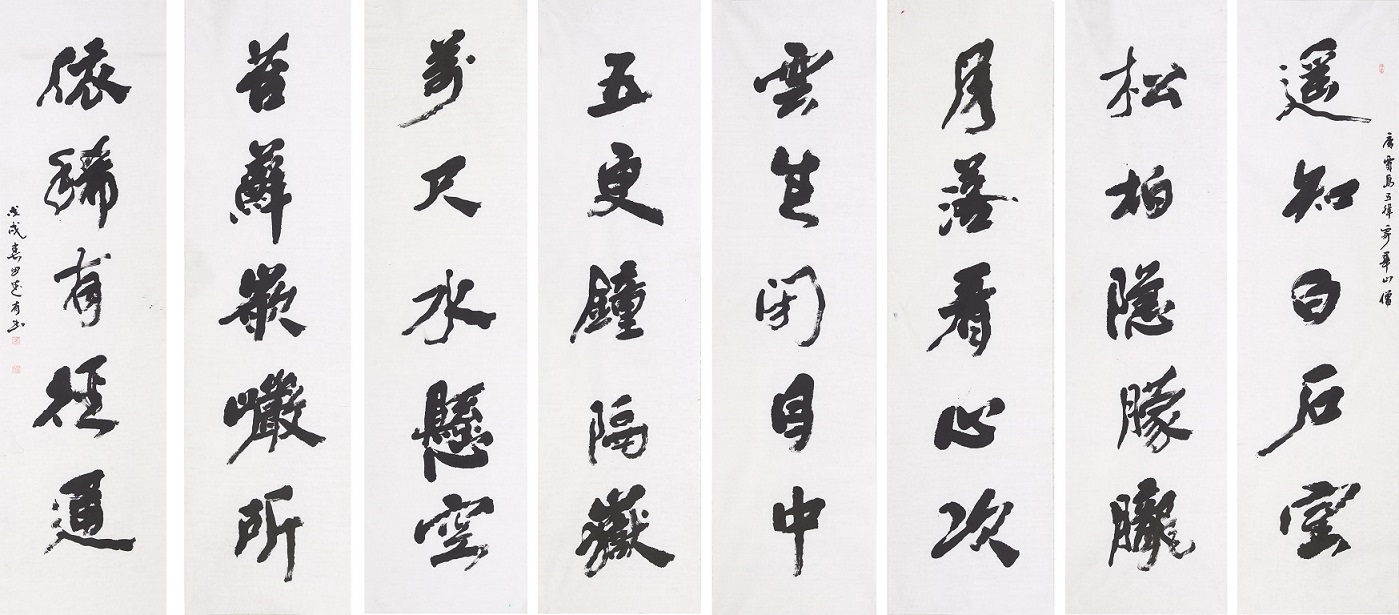 唐賈島五律寄華山僧
遥知白石室
松柏隱朦朧
月落看心次
雲生閉目中
五更鐘隔嶽
萬尺水懸空
苔蘚嵌巗所
依稀有徑通
戊戌